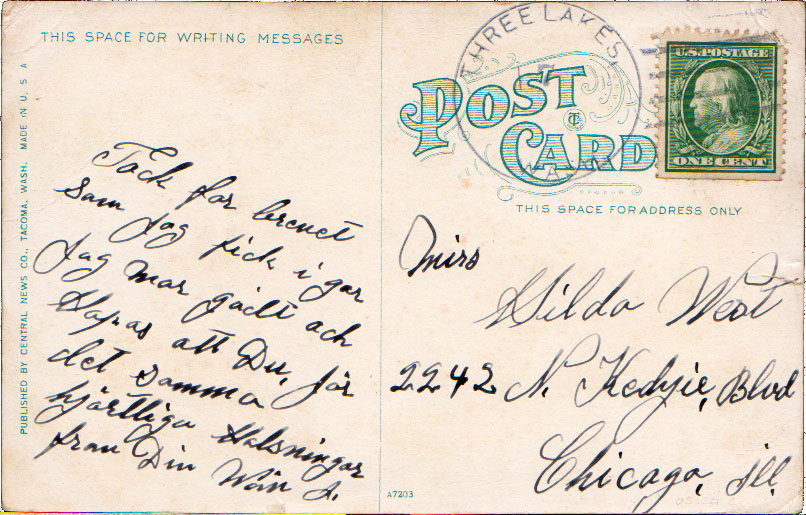 THIS SPACE FOR WRITING MESSAGES
THREE LAKES,
WA
POST CARD
U.S. POSTAGE
ONE CENT
THIS SPACE FOR ADDRESS ONLY
PUBLISHED BY CENTRAL NEWS CO., TACOMA, WASH. MADE IN U S A
Tack for brevet
som jag fick i gar
Jag mar godt och
Hapas att Du, får
det samma
hjärtliga Halsningar
fran Din Wän A.
Miss
Hilda West
2242 N. Kedzie, Blvd
Chicago, Ill.
A7203